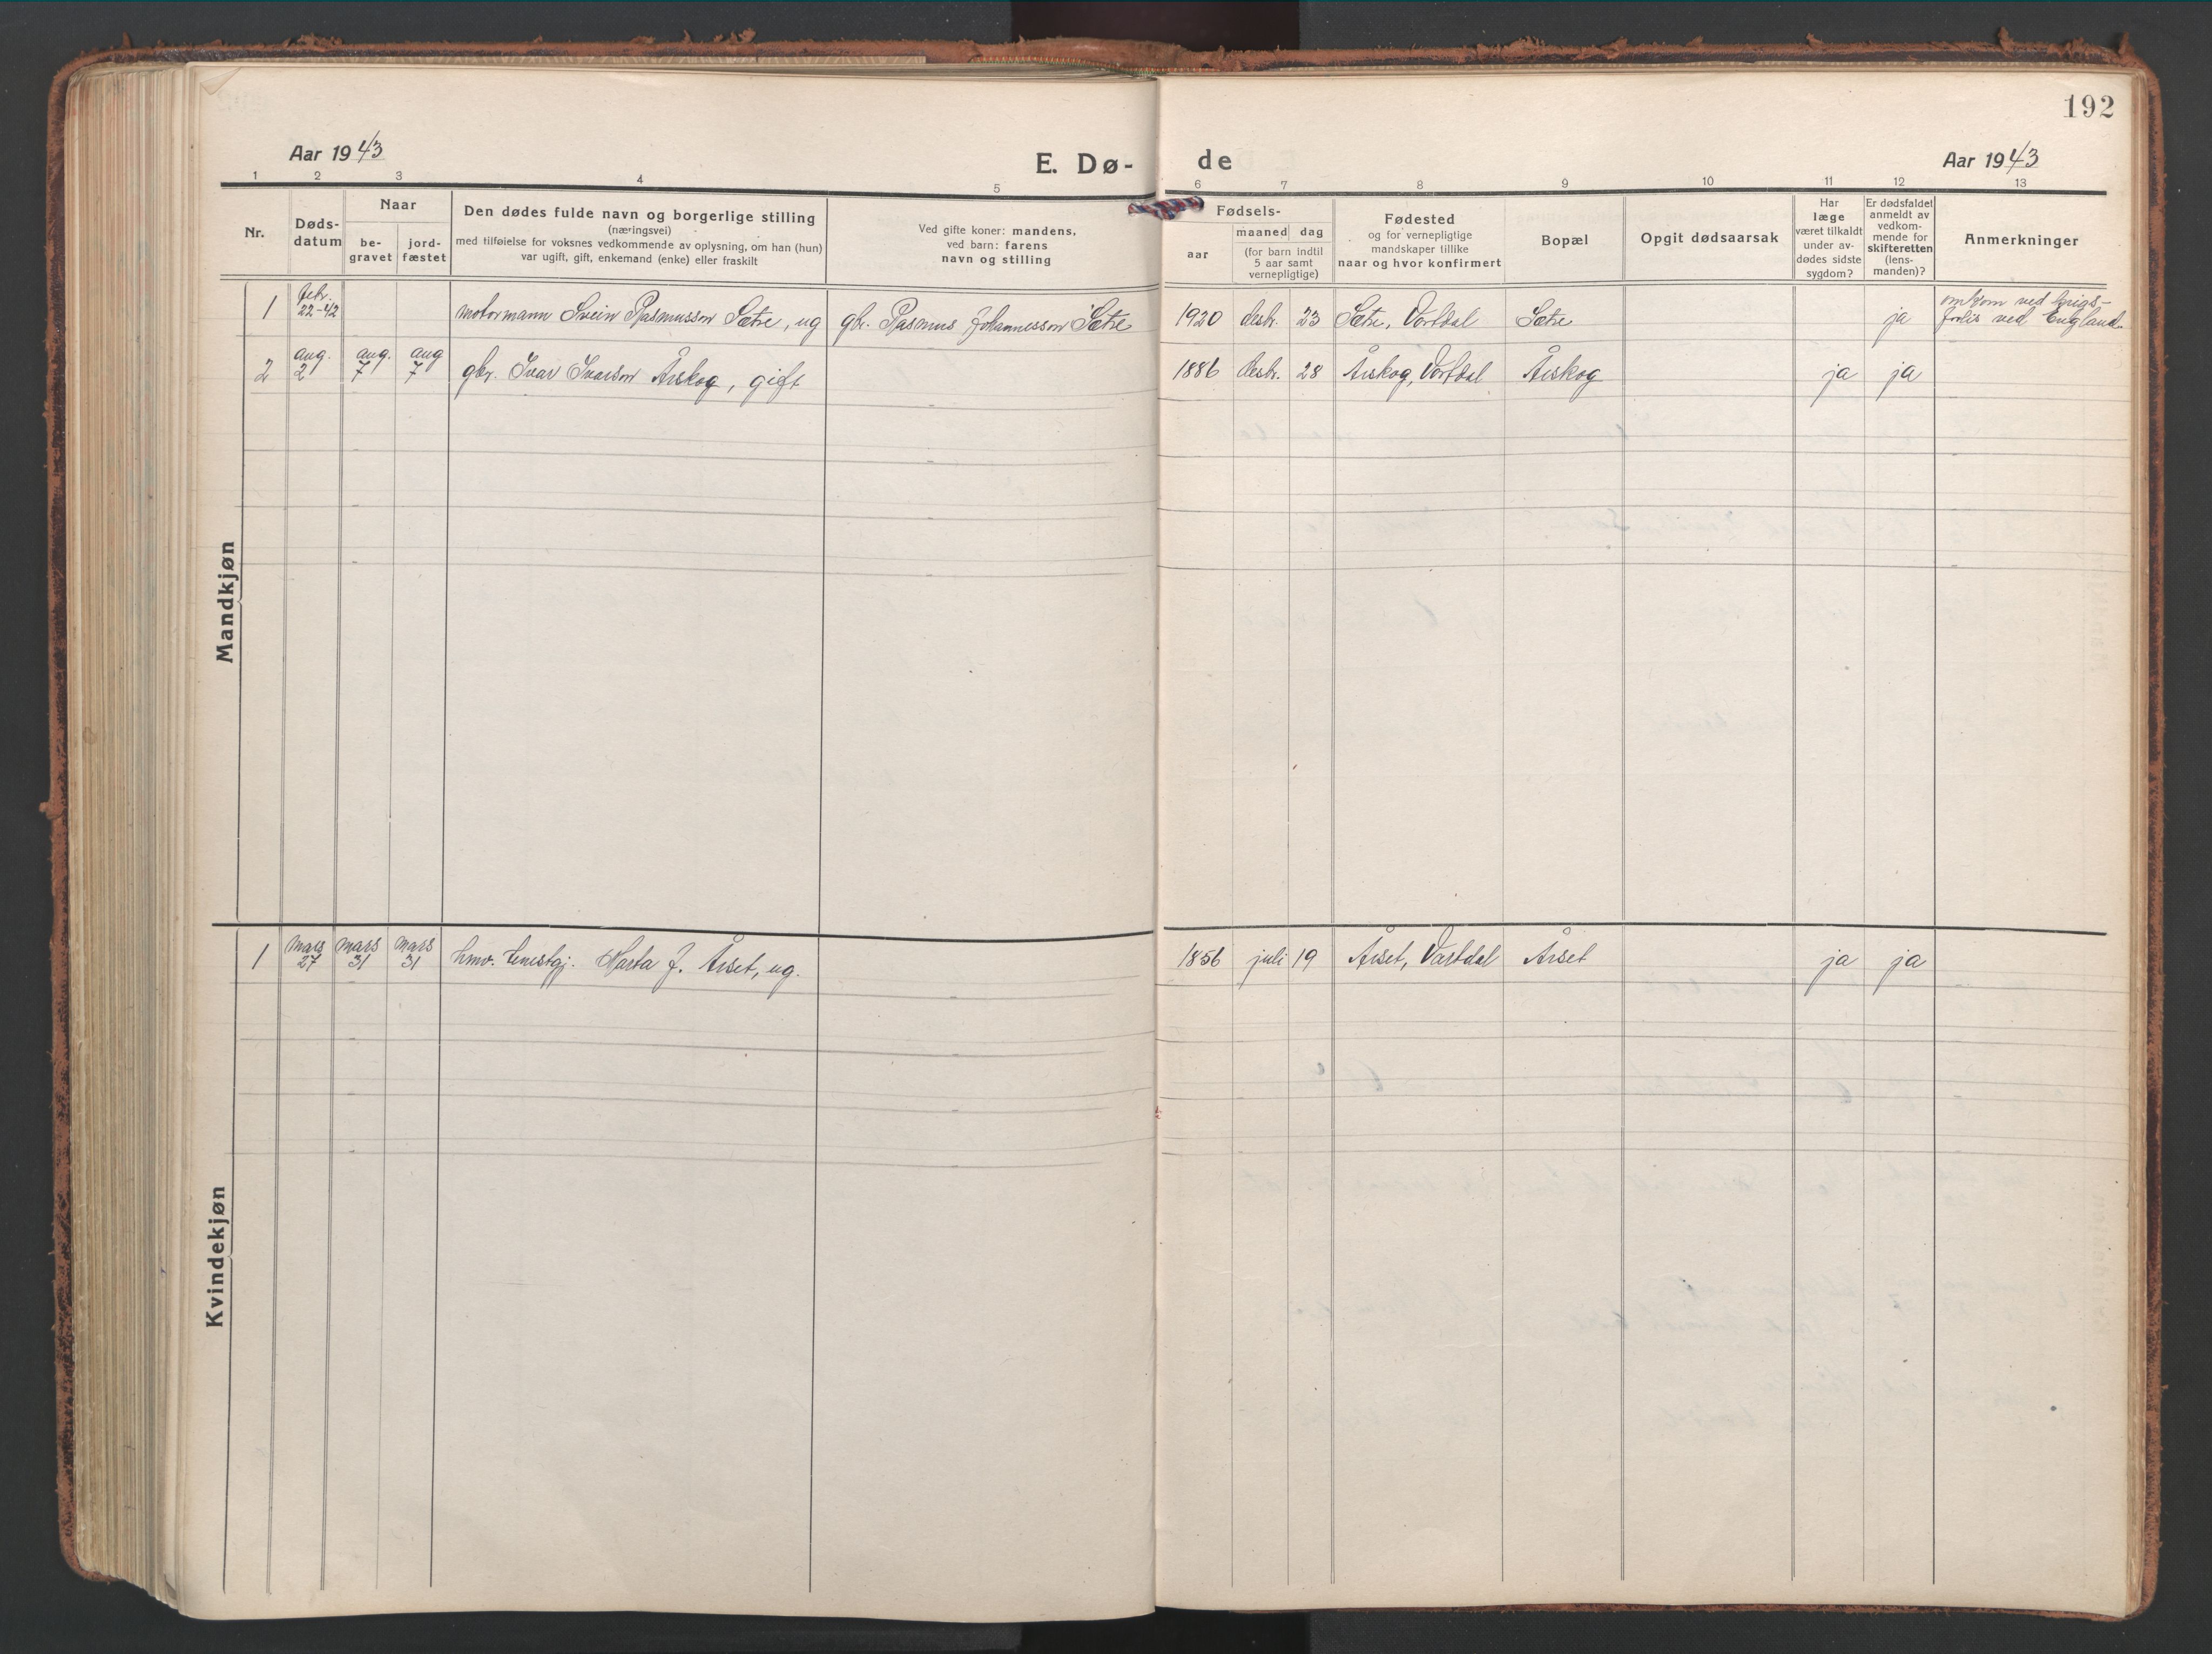 192
Aar 1943
E. Dø-
de
Aar 1943
1 2 3 4 5 6 7 8 9 10 11 12 13
Nr.
Døds-
datum
Naar
be-
gravet
jord-
fæstet
Den dødes fulde navn og borgerlige stilling
(næringsvei)
med tilføielse for voksnes vedkommende av oplysning, om han (hun)
var ugift, gift, enkemand (enke) eller fraskilt
Ved gifte koner: mandens,
ved barn: farens
navn og stilling
Fødsels-
aar
maaned dag
(for barn indtil
5 aar samt
vernepligtige)
Fødested
og for vernepligtige
mandskaper tillike
naar og hvor konfirmert
Bopæl
Opgit dødsaarsak
Har
læge
været tilkaldt
under av-
dødes sidste
sygdom?
Er dødsfaldet
anmeldt av
vedkom-
mende for
skifteretten
(lens-
manden)?
Anmerkninger
Mandkjøn
1 febr. 22-42 motormann Svein Rasmusson Sætre, ug gbr. Rasmus Johannesson Sætre 1920 desbr. 23 Sætre, Vartdal Sætre ja omkom ved krigs-
forlis ved England.
2 aug. 2 aug. 7 aug 7 gbr. Ivar Ivarson Årskog, gift 1886 desbr. 28 Årskog, Vartdal Årskog ja ja
Kvindekjøn
1 mars 27 mars 31 mars 31 hmv. tenestgj. Marta J. Årset, ug. 1856 juli 19 Årset, Vartdal Årset ja ja